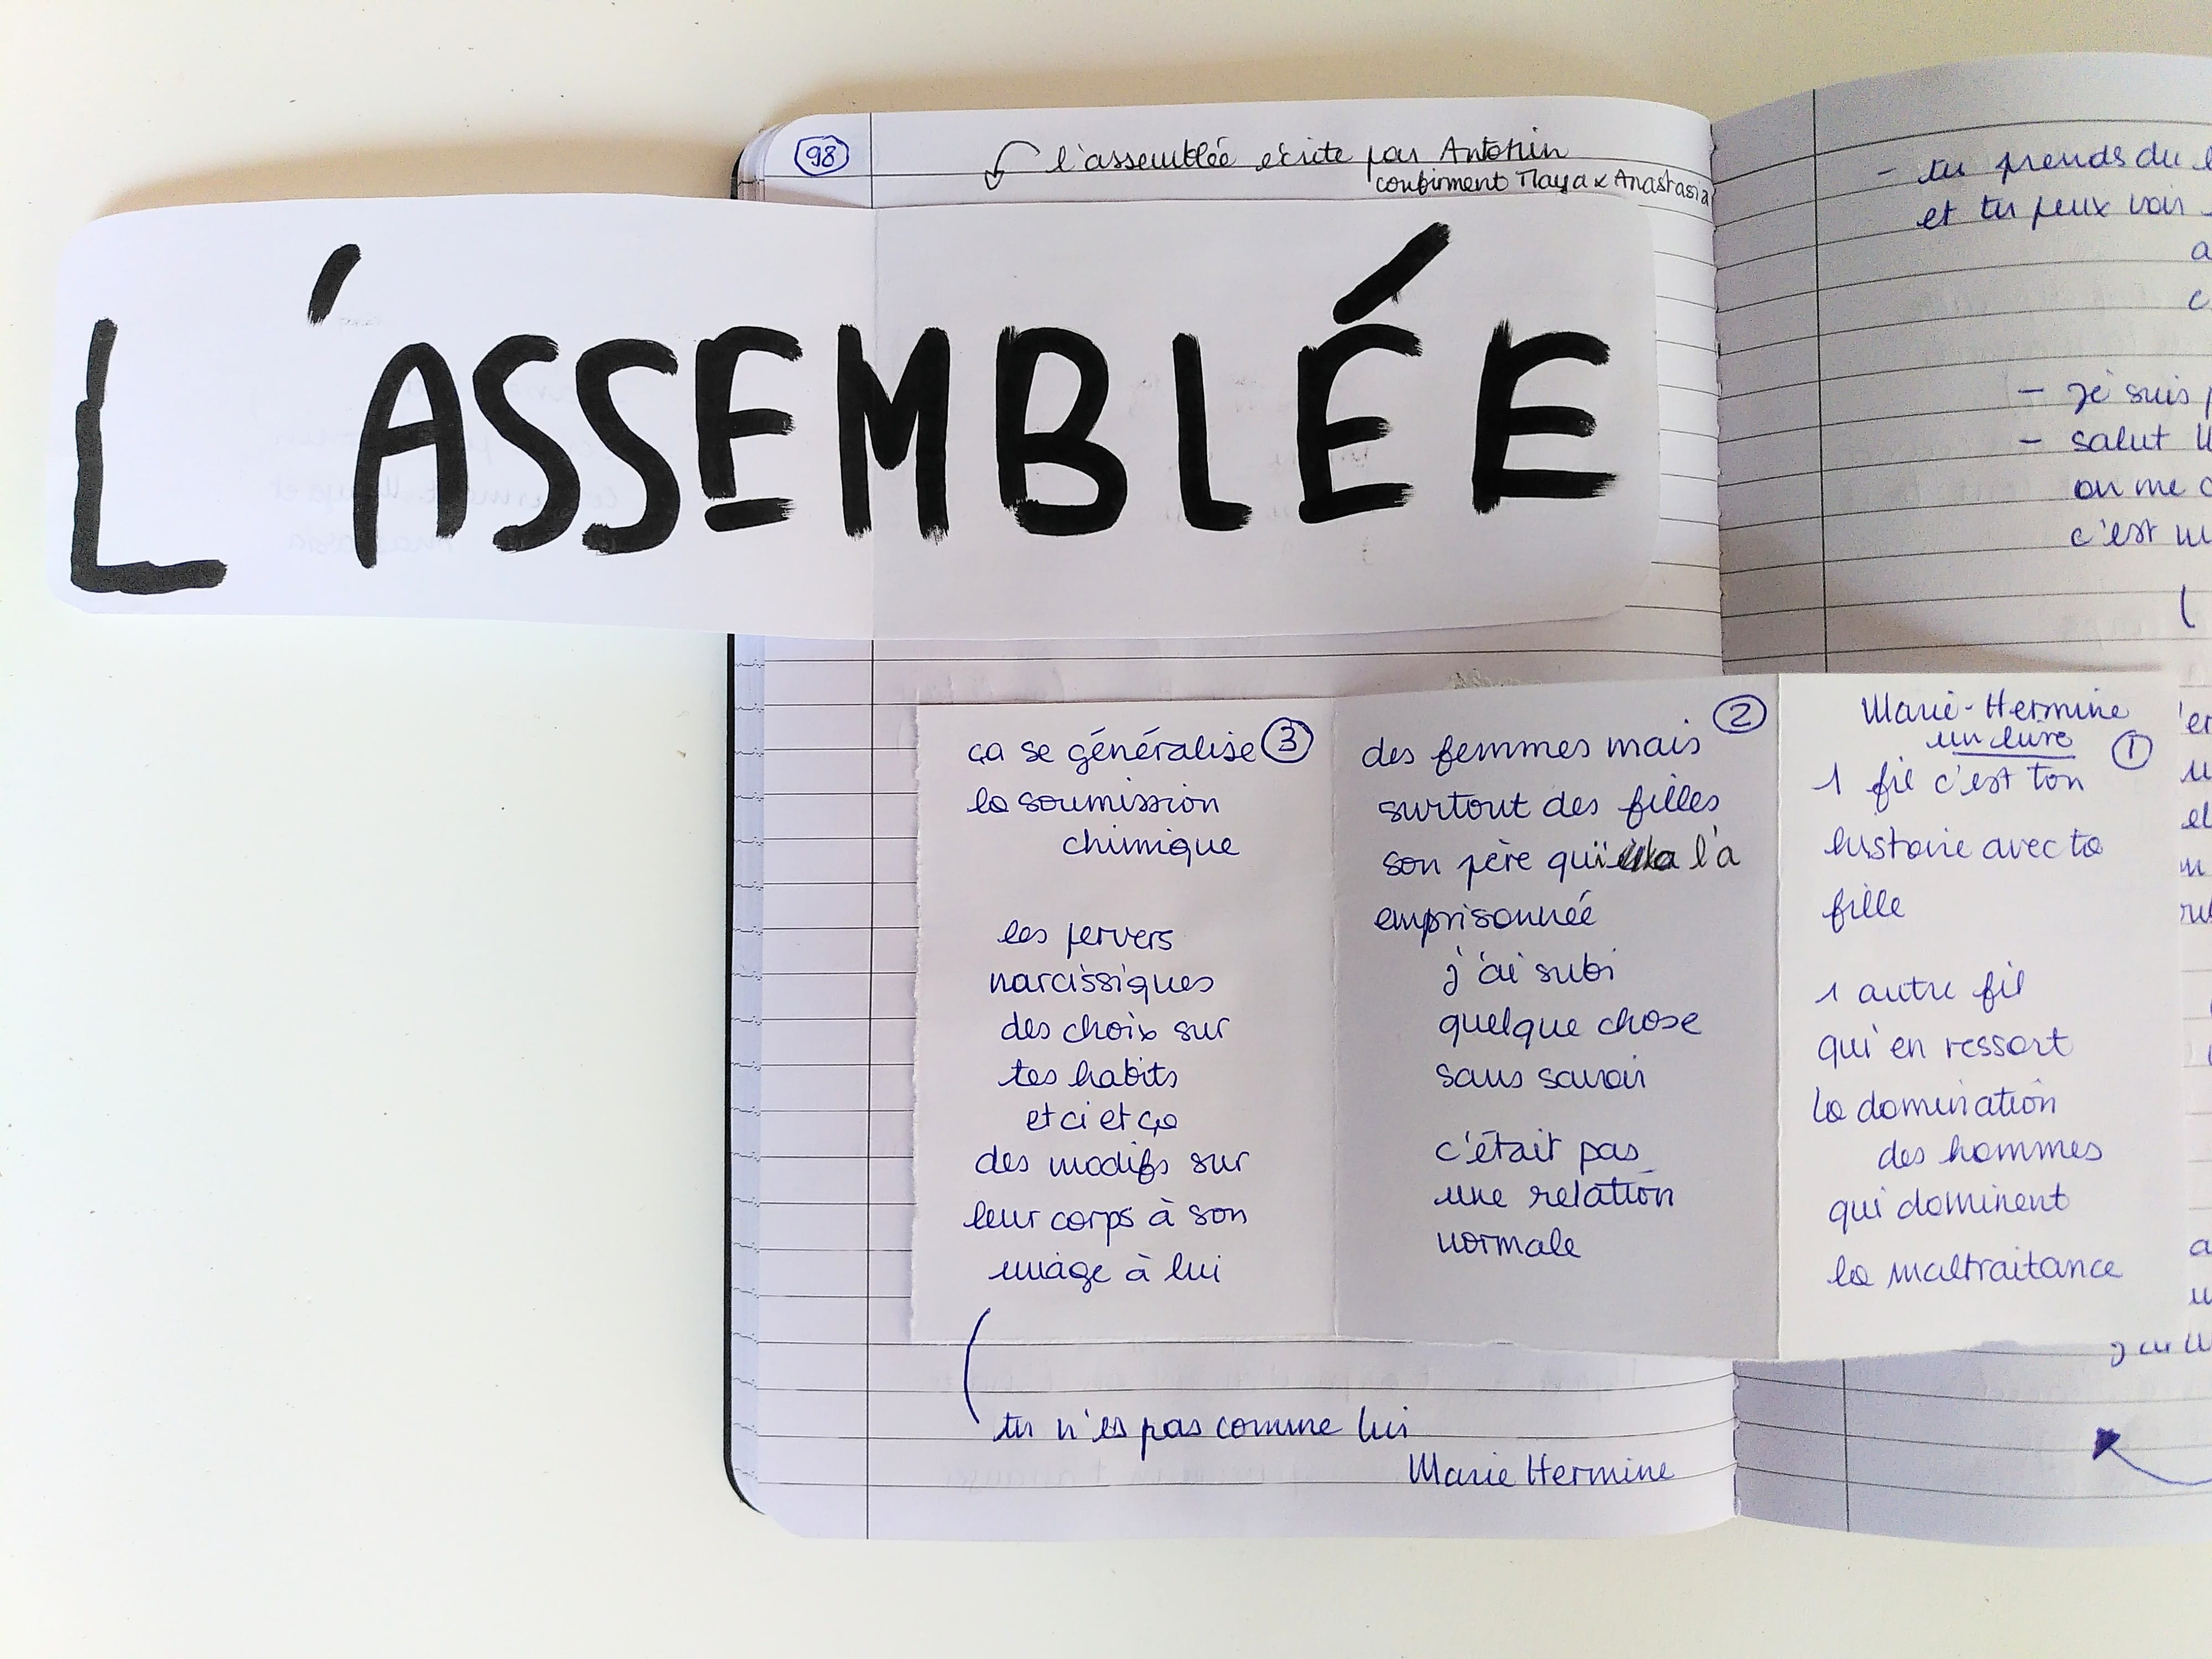 98
l'assemblée écrite par Antonin
confirment Maya & Anastasia
L'ASSEMBLÉE
Marie-Hermine
un livre
1
1 fil c'est ton
histoire avec ta
fille
1 autre fil
qui en ressort
la domination
des hommes
qui dominent
la maltraitance
2
des femmes mais
surtout des filles
son père qui l'a
emprisonnée
j'ai subi
quelque chose
sans savoir
c'était pas
une relation
normale
3
ça se généralise
la soumission
chimique
les pervers
narcissiques
des choix sur
tes habits
et ci et ça
des modifs sur
leur corps à son
image à lui
tu n'es pas comme lui
Marie Hermine
- tu prends du
et tu peux voir
- je suis
- salut
on me
c'est